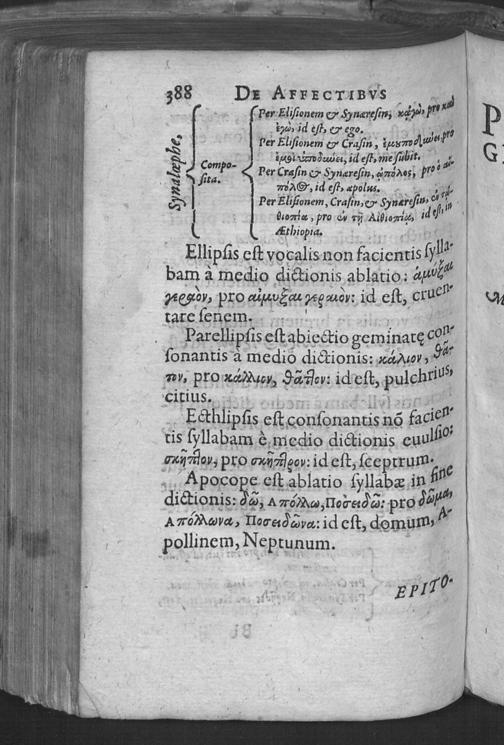 388 DE AFFECTIBVS
Synalœphe,
Compo-
sita.
Per Elisionem & Synæresin, κᾀγὼ, pro καὶ
ἐγὼ, id est, & ego.
Per Elisionem & Crasin, pro
id est, me subit.
Per Crasin & Synæresin, ᾠπόλος, pro ὁ αἰ-
πόλος, id est, æpolus.
Per Elisionem, Crasin, & Synæresin,
θιοπία, pro ἐν τῇ Αἰθιοπία, id est, in
Æthiopia.
Ellipsis est vocalis non facientis sylla-
bam à medio dictionis ablatio: ἀμύξαι
γεραὸν, pro αἰμύξαι γεραιόν: id est, cruen-
tare senem.
Parellipsis est abiectio geminatę con-
sonantis à medio dictionis: κάλιον, θᾶ-
τον, pro κάλλιον, θᾶττον: id est, pulchrius,
citius.
Ecthlipsis est consonantis nõ facien-
tis syllabam è medio dictionis euulsio:
σκῆπτον, pro σκῆπτρον: id est, sceptrum.
Apocope est ablatio syllabæ in fine
dictionis: δῶ, Απόλλω, Ποσειδῶ: pro δῶμα,
Απόλλωνα, Ποσειδῶνα: id est, domum, A-
pollinem, Neptunum.
EPITO-